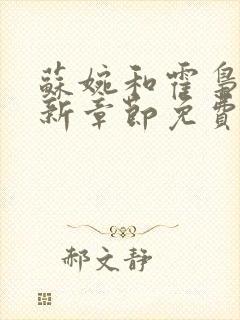 蘇婉和霍梟
新章節免費
郝文靜